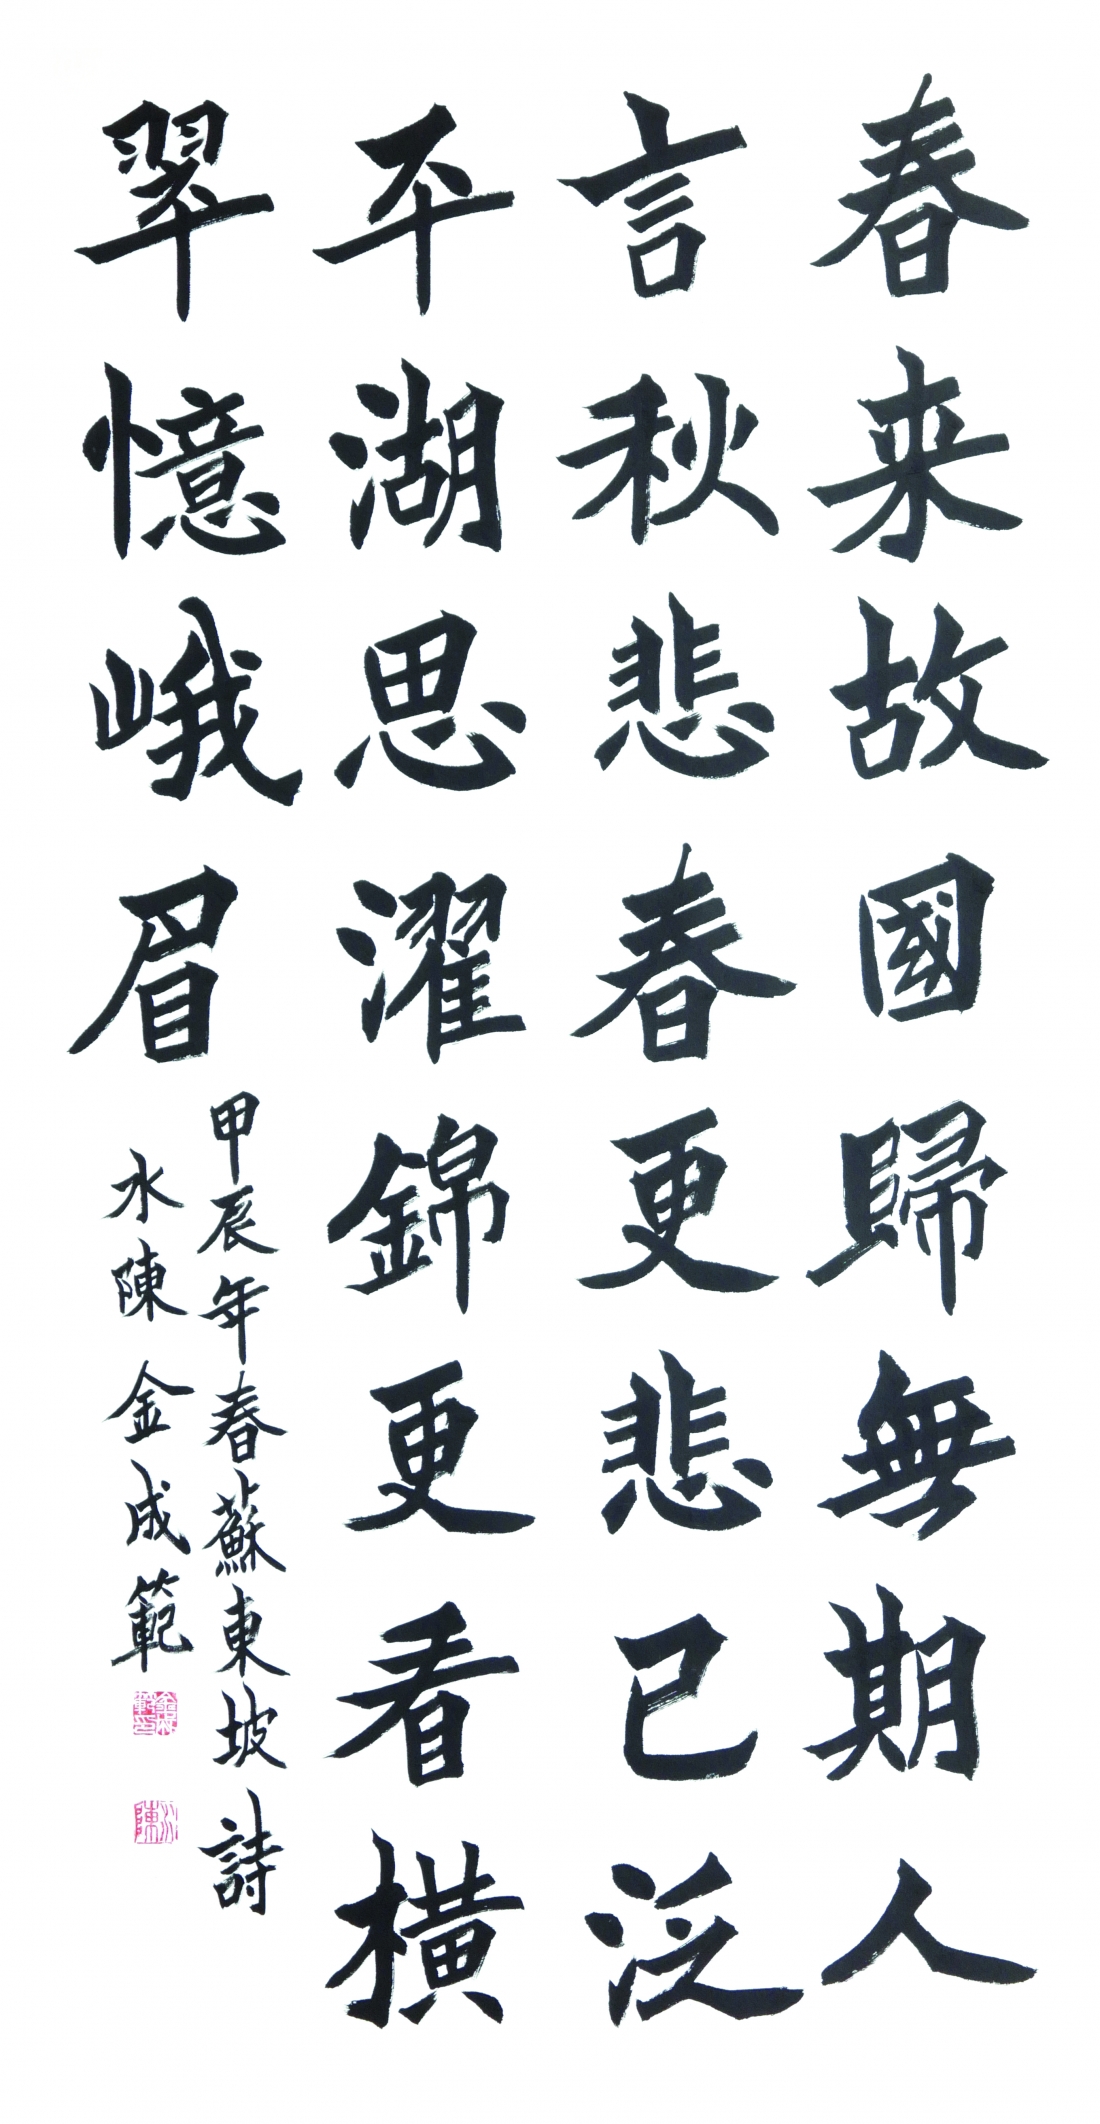 春来故國歸無期人
言秋悲春更悲已泛
平湖思濯錦更看橫
翠憶峨眉
甲辰年春蘇東坡詩
水陳金成範